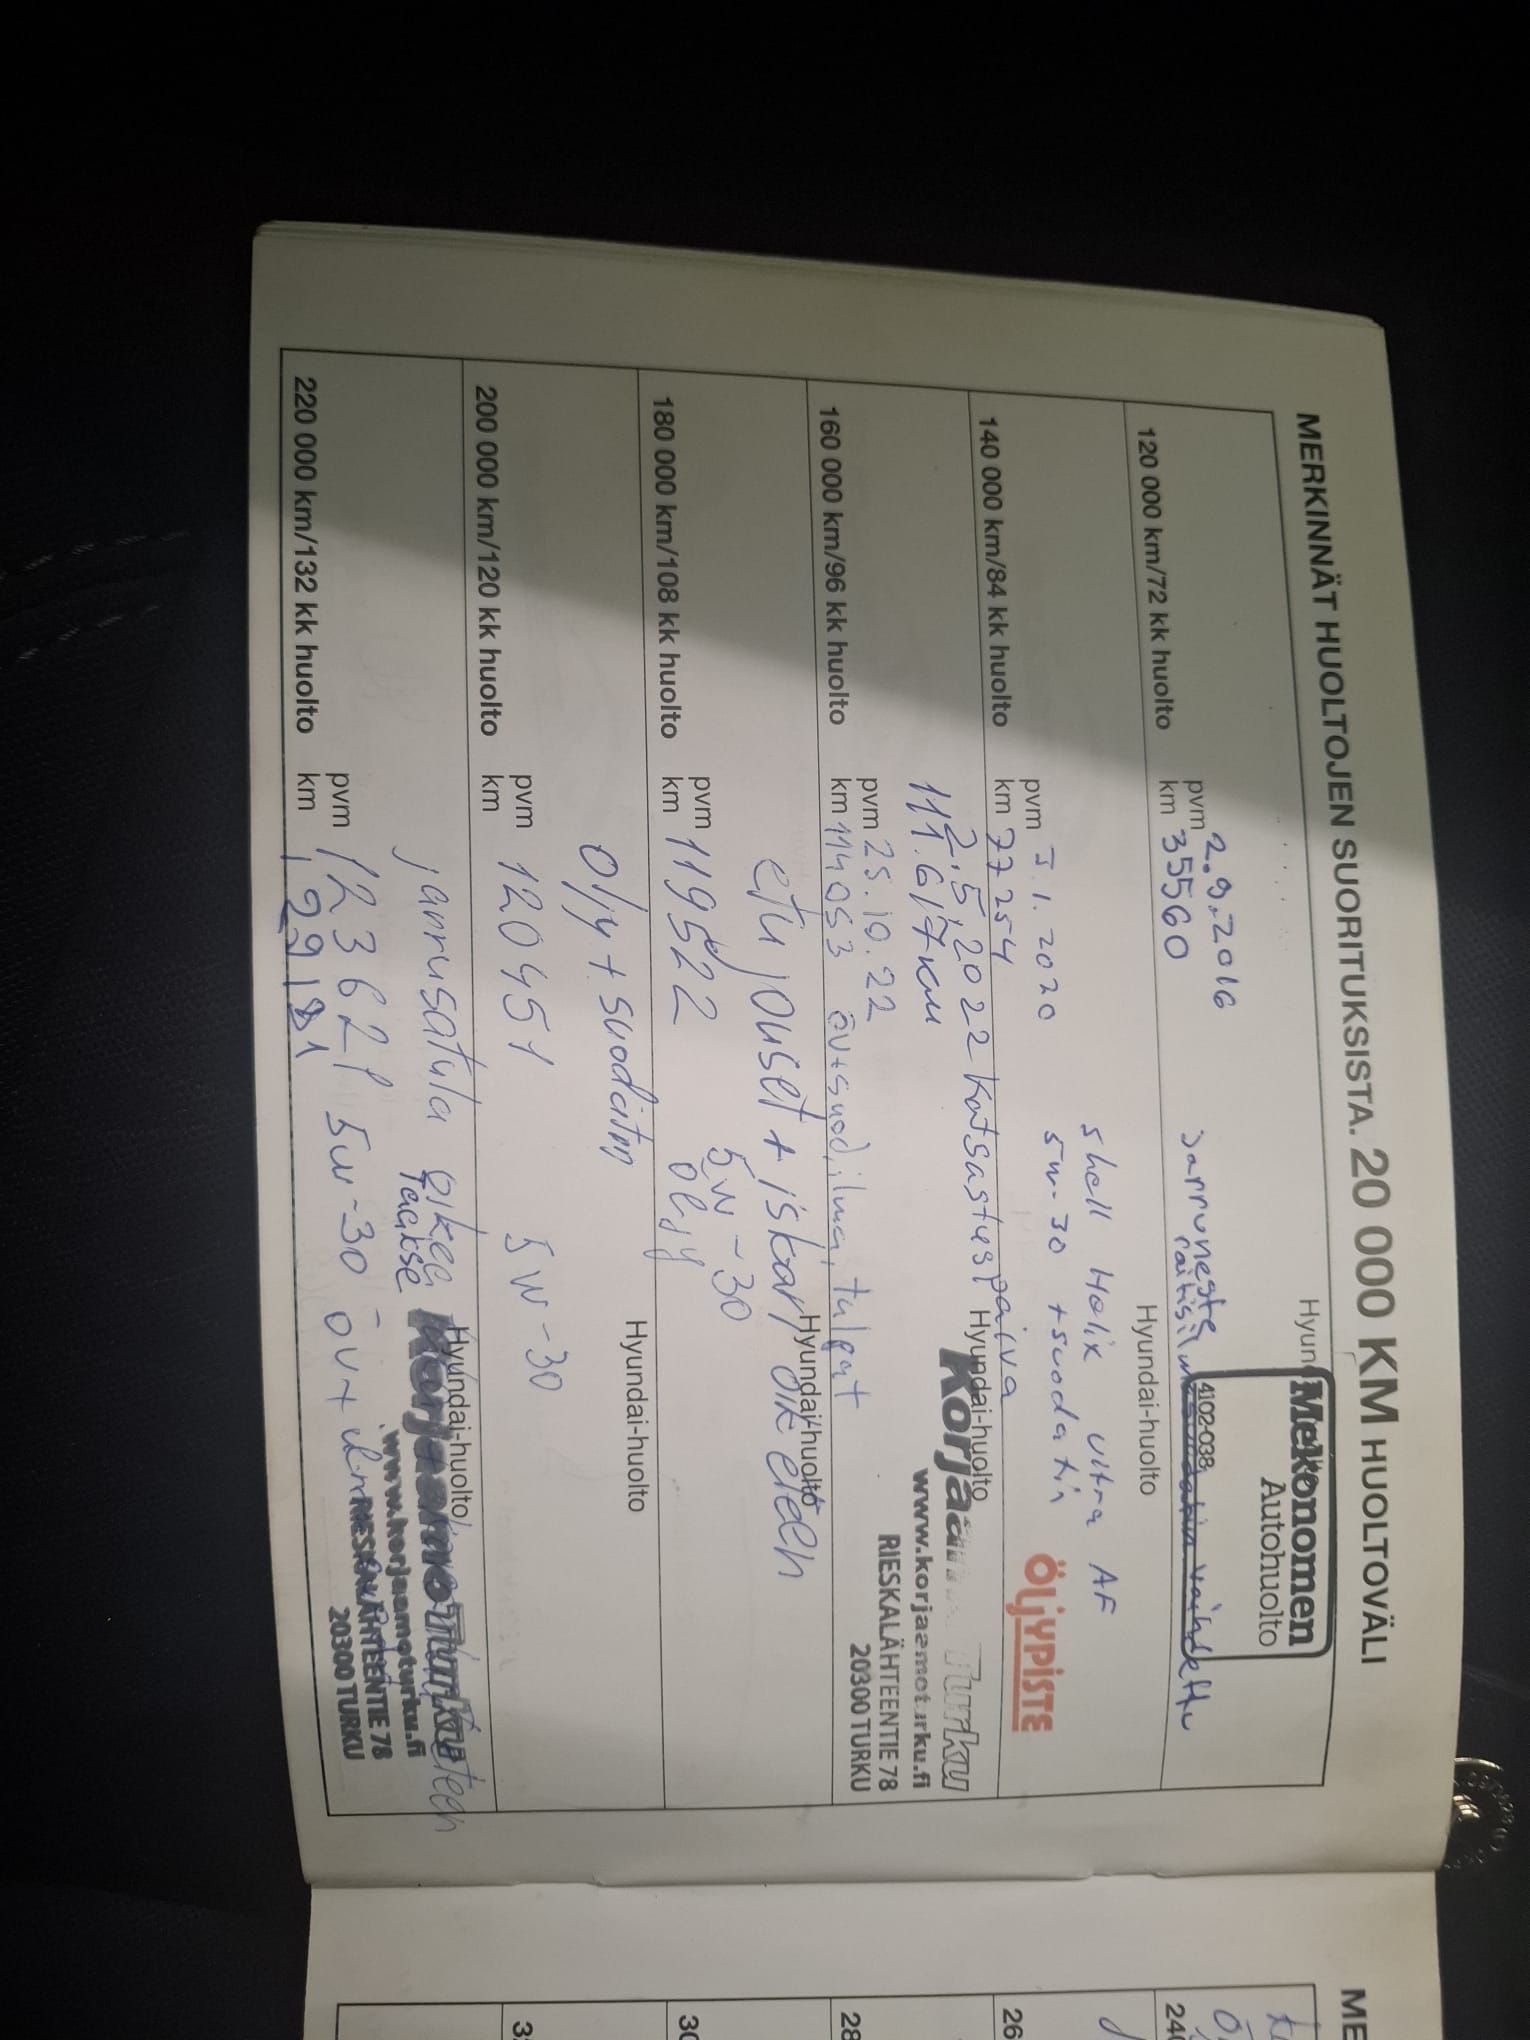 MERKINNÄT HUOLTOJEN SUORITUKSISTA. 20 000 KM HUOLTOVÄLI
Mekonomen
Autohuolto
4102-038
120 000 km/72 kk huolto
pvm 2.9.2016
km 35560
Jarruneste
vaihdettu
Hyundai-huolto
shell Helix Ultra AF
140 000 km/84 kk huolto
pvm 7.1.2020
5w-30 + suodatin
ÖLJYPISTE
km 77254
2.5.2022 Katsastuspäivä
Hyundai-huolto
111.617 km
Korjaamo Turku
www.korjaamoturku.fi
RIESKALÄHTEENTIE 78
20300 TURKU
160 000 km/96 kk huolto
pvm 25.10.22
km 114053 öv+suod, ilma, tulpat
Hyundai-huolto
etujouset + iskari oik eteen
180 000 km/108 kk huolto
pvm
km 119522
5w-30
öljy
Hyundai-huolto
Öljy + suodatin
200 000 km/120 kk huolto
pvm
km 120451
5W-30
Hyundai-huolto
jarrusatula oikea
taakse
Korjaamo Turku
www.korjaamoturku.fi
RIESKALÄHTEENTIE 78
20300 TURKU
220 000 km/132 kk huolto
pvm 123621 5w-30 öv+
km
ME
240
26
28
30